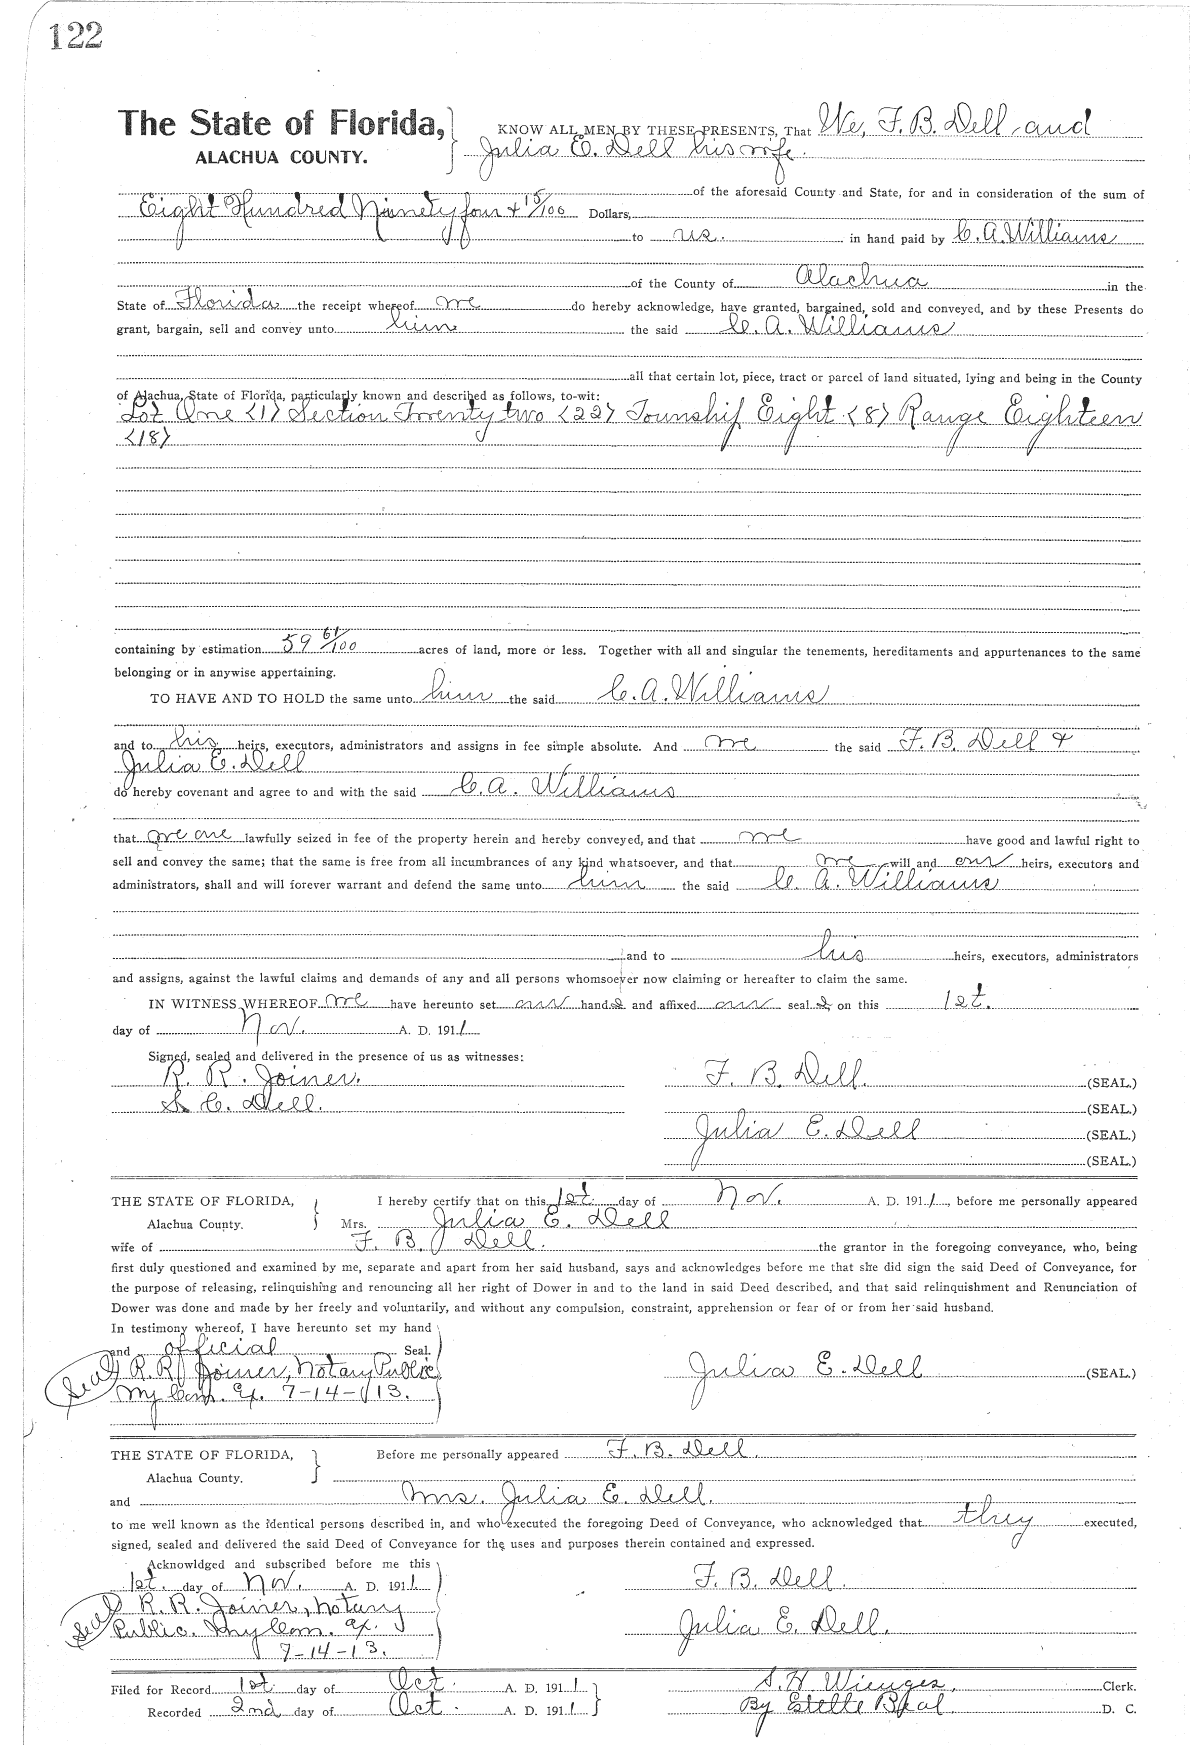 122
The State of Florida, KNOW ALL MEN BY THESE PRESENTS, That We, F. B. Dell and
ALACHUA COUNTY. Julia E. Dell his wife.
of the aforesaid County and State, for and in consideration of the sum of
Eight Hundred Ninety four + 15/100 Dollars,
to us. in hand paid by C. A. Williams
of the County of Alachua in the
State of Florida the receipt whereof we do hereby acknowledge, have granted, bargained, sold and conveyed, and by these Presents do
grant, bargain, sell and convey unto him the said C. A. Williams
all that certain lot, piece, tract or parcel of land situated, lying and being in the County
of Alachua, State of Florida, particularly known and described as follows, to-wit:
Lot One <1> Section Twenty two <22> Township Eight <8> Range Eighteen
<18>
containing by estimation 59 61/100 acres of land, more or less. Together with all and singular the tenements, hereditaments and appurtenances to the same
belonging or in anywise appertaining.
TO HAVE AND TO HOLD the same unto him the said C. A. Williams
and to his heirs, executors, administrators and assigns in fee simple absolute. And we the said F. B. Dell +
Julia E. Dell
do hereby covenant and agree to and with the said C. A. Williams
that we are lawfully seized in fee of the property herein and hereby conveyed, and that we have good and lawful right to
sell and convey the same; that the same is free from all incumbrances of any kind whatsoever, and that we will and our heirs, executors and
administrators, shall and will forever warrant and defend the same unto him the said C. A. Williams
and to his heirs, executors, administrators
and assigns, against the lawful claims and demands of any and all persons whomsoever now claiming or hereafter to claim the same.
IN WITNESS WHEREOF we have hereunto set our hand s and affixed our seal s on this 1st.
day of Nov. A. D. 191 1
Signed, sealed and delivered in the presence of us as witnesses:
R. R. Joiner. F. B. Dell. (SEAL.)
S. C. Dell. (SEAL.)
Julia E. Dell (SEAL.)
(SEAL.)
THE STATE OF FLORIDA, I hereby certify that on this 1st. day of Nov. A. D. 191 1, before me personally appeared
Alachua County. Mrs. Julia E. Dell
wife of F. B. Dell. the grantor in the foregoing conveyance, who, being
first duly questioned and examined by me, separate and apart from her said husband, says and acknowledges before me that she did sign the said Deed of Conveyance, for
the purpose of releasing, relinquishing and renouncing all her right of Dower in and to the land in said Deed described, and that said relinquishment and Renunciation of
Dower was done and made by her freely and voluntarily, and without any compulsion, constraint, apprehension or fear of or from her said husband.
In testimony whereof, I have hereunto set my hand
and official Seal.
Seal R. R. Joiner, Notary Public Julia E. Dell (SEAL.)
My Com. Ex. 7-14-13.
THE STATE OF FLORIDA, Before me personally appeared F. B. Dell.
Alachua County.
and Mrs. Julia E. Dell.
to me well known as the identical persons described in, and who executed the foregoing Deed of Conveyance, who acknowledged that they executed,
signed, sealed and delivered the said Deed of Conveyance for the uses and purposes therein contained and expressed.
Acknowldged and subscribed before me this
1st. day of Nov. A. D. 191 1. F. B. Dell.
Seal R. R. Joiner, Notary
Public. My Com. Ex. Julia E. Dell.
7-14-13.
Filed for Record 1st day of Oct. A. D. 191 1 S. H. Wienges. Clerk.
Recorded 2nd day of Oct. A. D. 191 1 By Estelle Beal. D. C.